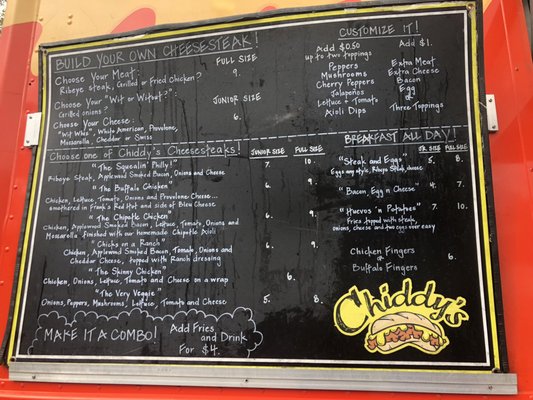 BUILD YOUR OWN CHEESESTEAK!
FULL SIZE
Choose Your Meat:
Ribeye steak, Grilled or Fried Chicken?
9.
Choose Your "Wit or Witout?":
Grilled onions?
JUNIOR SIZE
Choose Your Cheese:
6.
"Wit Whiz", White American, Provolone,
Mozzarella, Cheddar or Swiss
Choose one of Chiddy's Cheesesteaks!
JUNIOR SIZE
FULL SIZE
"The Squealin' Philly!"
7.
10.
Ribeye Steak, Applewood Smoked Bacon, Onions and Cheese
"The Buffalo Chicken"
6.
9.
Chicken, Lettuce, Tomato, Onions and Provolone Cheese...
smothered in Frank's Red Hot and side of Blue Cheese.
"The Chipotle Chicken"
6.
9.
Chicken, Applewood Smoked Bacon, Lettuce, Tomato, Onions and
Mozzarella. Finished with our homemade Chipotle Aioli
"Chicks on a Ranch"
6.
9.
Chicken, Applewood Smoked Bacon, Tomato, Onions and
Cheddar Cheese, topped with Ranch dressing
"The Skinny Chicken"
6.
Chicken, Onions, Lettuce, Tomato and Cheese on a wrap
"The Very Veggie"
5.
8.
Onions, Peppers, Mushrooms, Lettuce, Tomato and Cheese
MAKE IT A COMBO!
Add Fries
and Drink
For $4.
CUSTOMIZE IT!
Add $0.50
up to two toppings
Peppers
Mushrooms
Cherry Peppers
Jalapeños
Lettuce + Tomato
Aioli Dips
Add $1.
Extra Meat
Extra Cheese
Bacon
Egg
or
Three Toppings
BREAKFAST ALL DAY!
JR SIZE
FULL SIZE
"Steak and Eggs"
5.
8.
Eggs any style, Ribeye Steak, cheese
"Bacon, Egg n Cheese"
4.
7.
"Huevos 'n Potatoes"
7.
10.
Fries topped with steak,
onions, cheese and two eggs over easy
Chicken Fingers
or
6.
Buffalo Fingers
Chiddy's